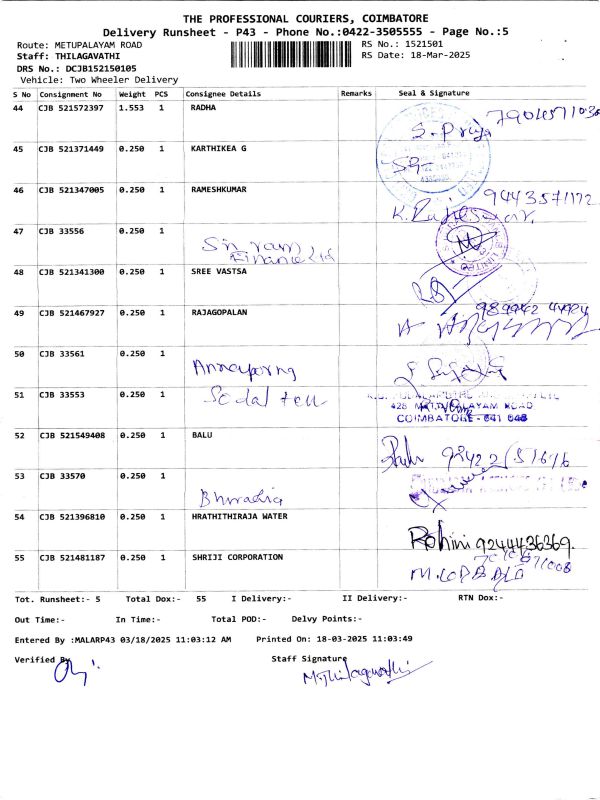 THE PROFESSIONAL COURIERS, COIMBATORE
Delivery Runsheet - P43 - Phone No.:0422-3505555 - Page No.:5
Route: METUPALAYAM ROAD
RS No.: 1521501
Staff: THILAGAVATHI
RS Date: 18-Mar-2025
DRS No.: DCJB152150105
Vehicle: Two Wheeler Delivery
S No Consignment No Weight PCS Consignee Details Remarks Seal & Signature
44 CJB 521572397 1.553 1 RADHA
S. Priya
45 CJB 521371449 0.250 1 KARTHIKEA G
46 CJB 521347005 0.250 1 RAMESHKUMAR
9443571172
47 CJB 33556 0.250 1
Sri ram
Finance Ltd
48 CJB 521341300 0.250 1 SREE VASTSA
49 CJB 521467927 0.250 1 RAJAGOPALAN
50 CJB 33561 0.250 1
Annaporna
51 CJB 33553 0.250 1
428 METTUPALAYAM ROAD
COIMBATORE - 641 043
52 CJB 521549408 0.250 1 BALU
53 CJB 33570 0.250 1
54 CJB 521396810 0.250 1 HRATHITHIRAJA WATER
Rohini 9244436369.
55 CJB 521481187 0.250 1 SHRIJI CORPORATION
Tot. Runsheet:- 5 Total Dox:- 55 I Delivery:- II Delivery:- RTN Dox:-
Out Time:- In Time:- Total POD:- Delvy Points:-
Entered By :MALARP43 03/18/2025 11:03:12 AM Printed On: 18-03-2025 11:03:49
Verified By
Staff Signature
M.Thilagavathi